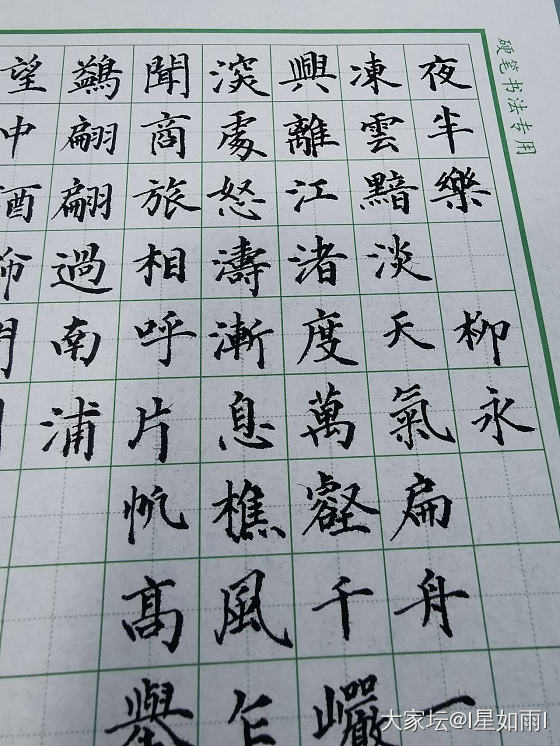 硬笔书法专用
夜半樂 柳永
凍雲黯淡天氣扁舟一
興離江渚度萬壑千巖
深處怒濤漸息樵風乍
聞商旅相呼片帆高舉
鷁翩翩過南浦
望中酒
大家坛@l星如雨l